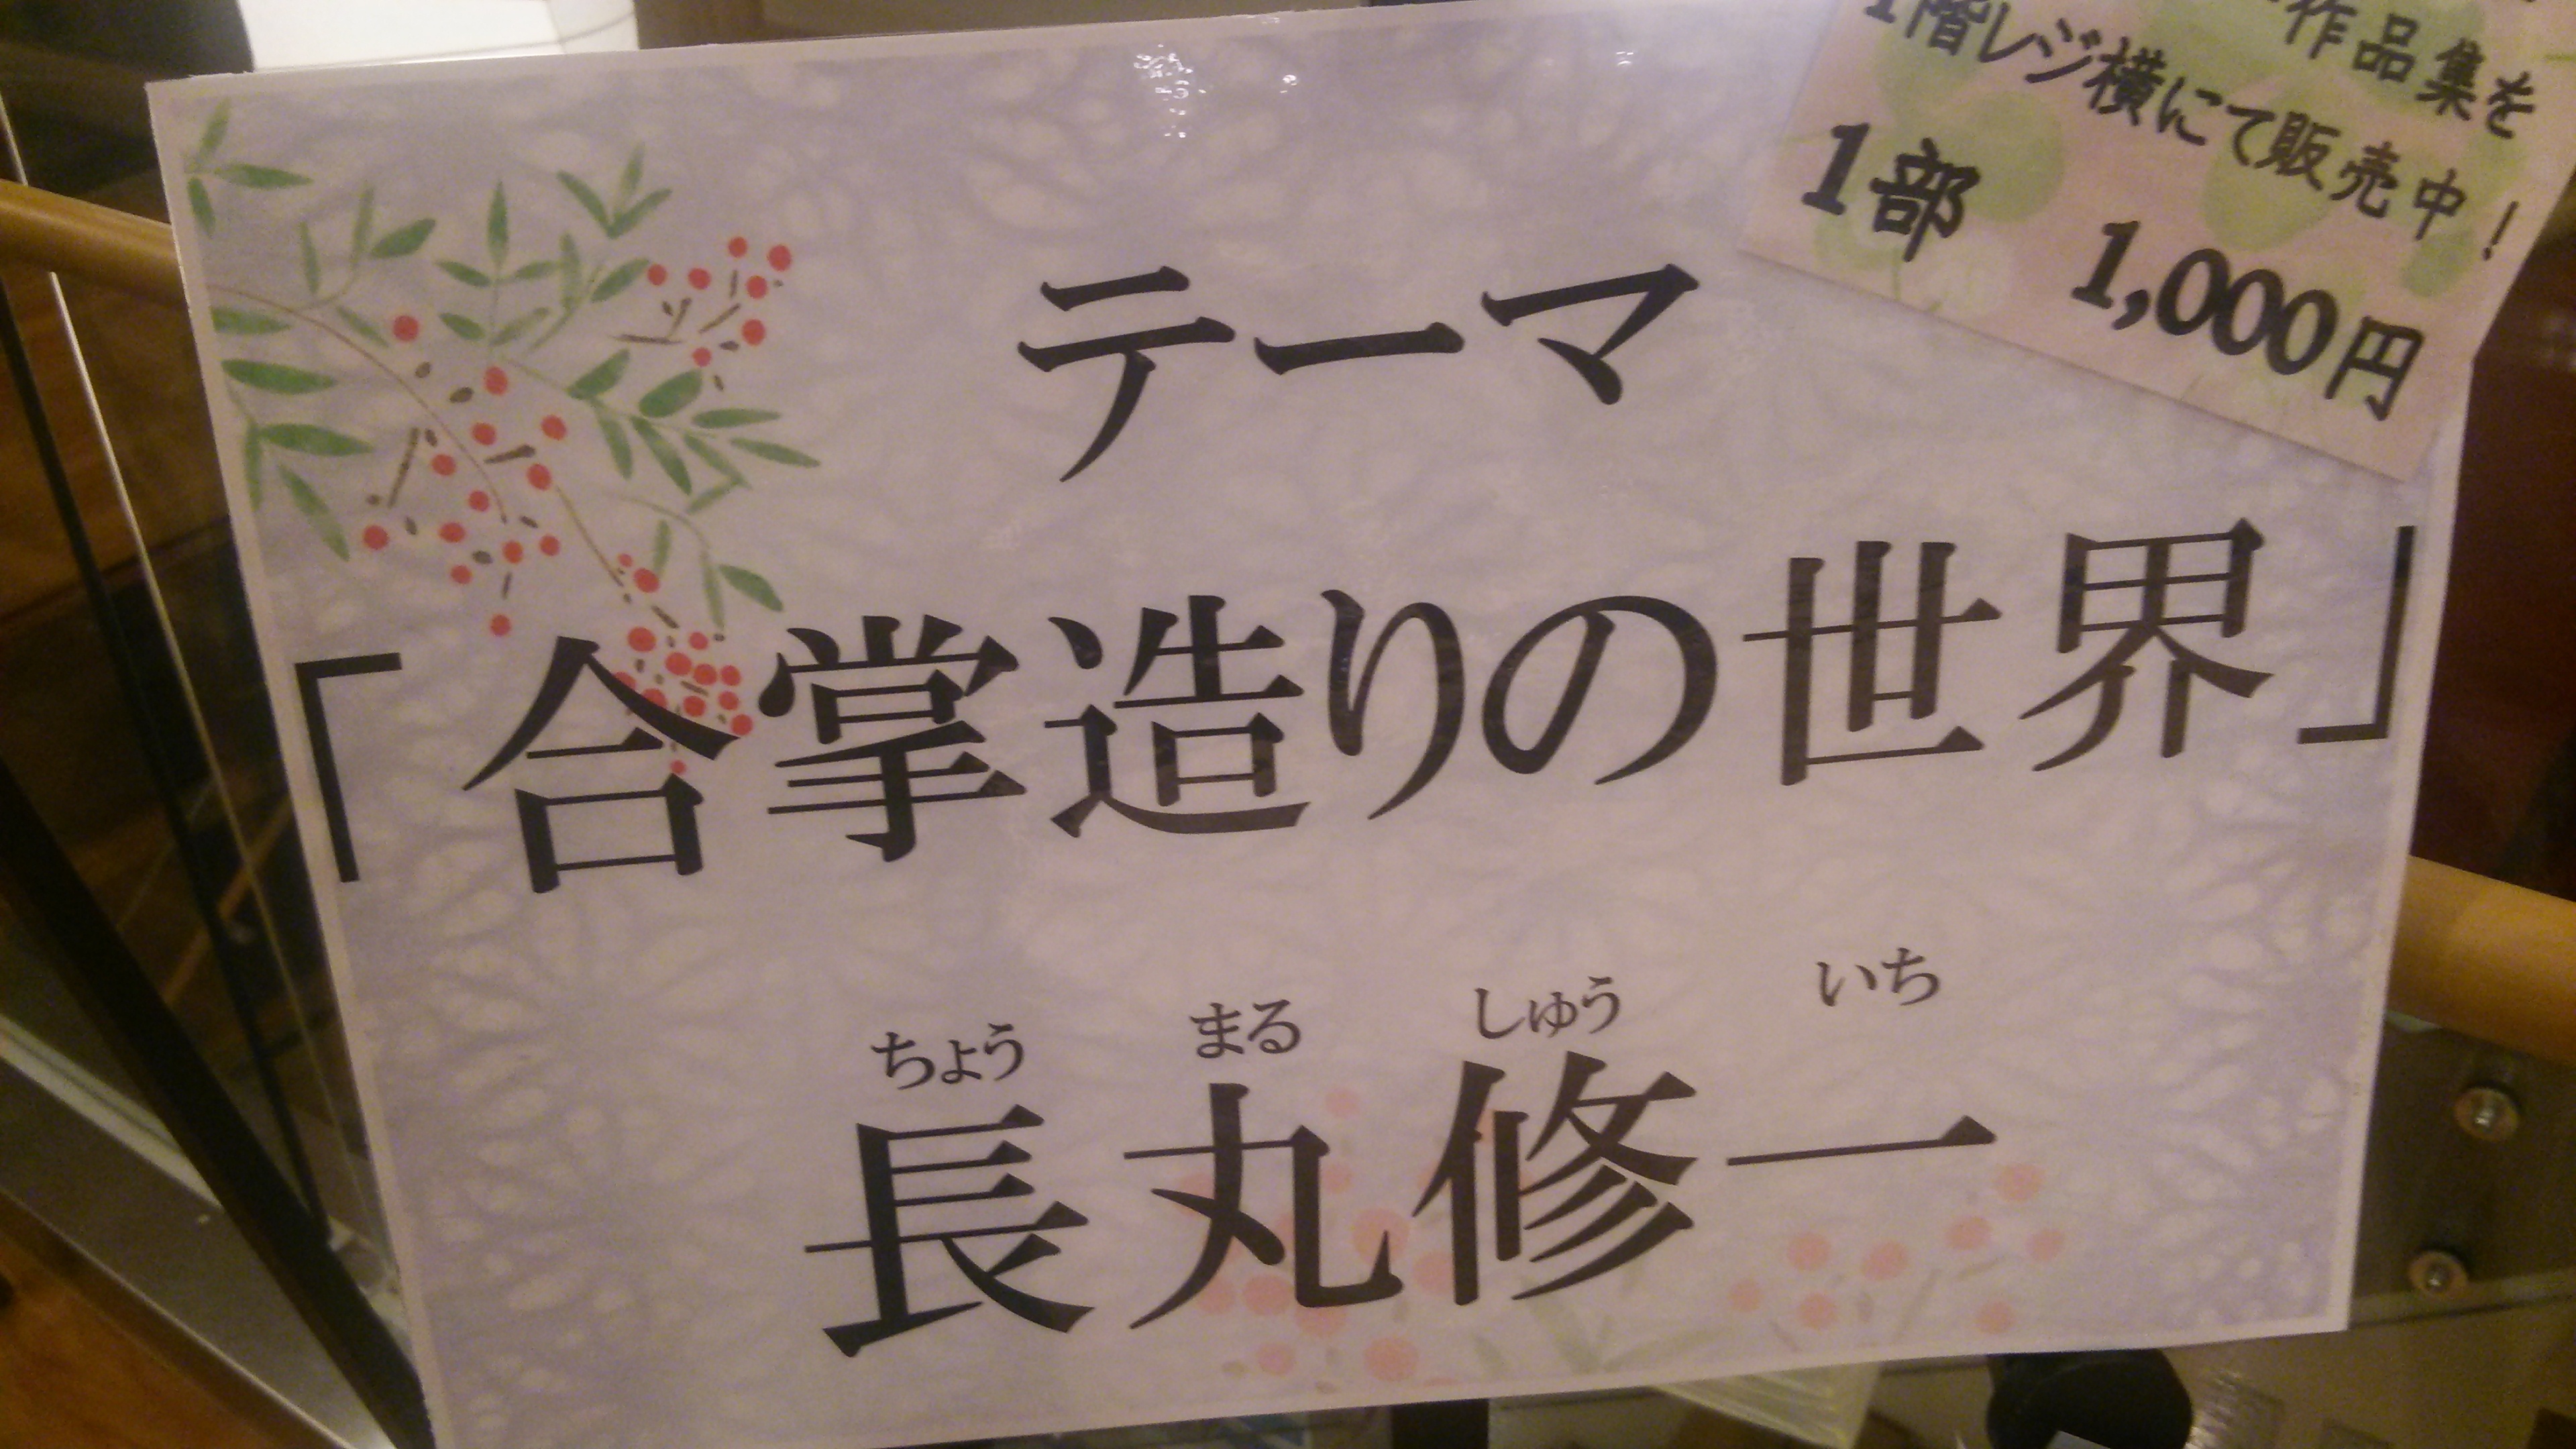 作品集を
1階レジ横にて販売中！
1部　1,000円
テーマ
「合掌造りの世界」
ちょう まる しゅう いち
長丸修一